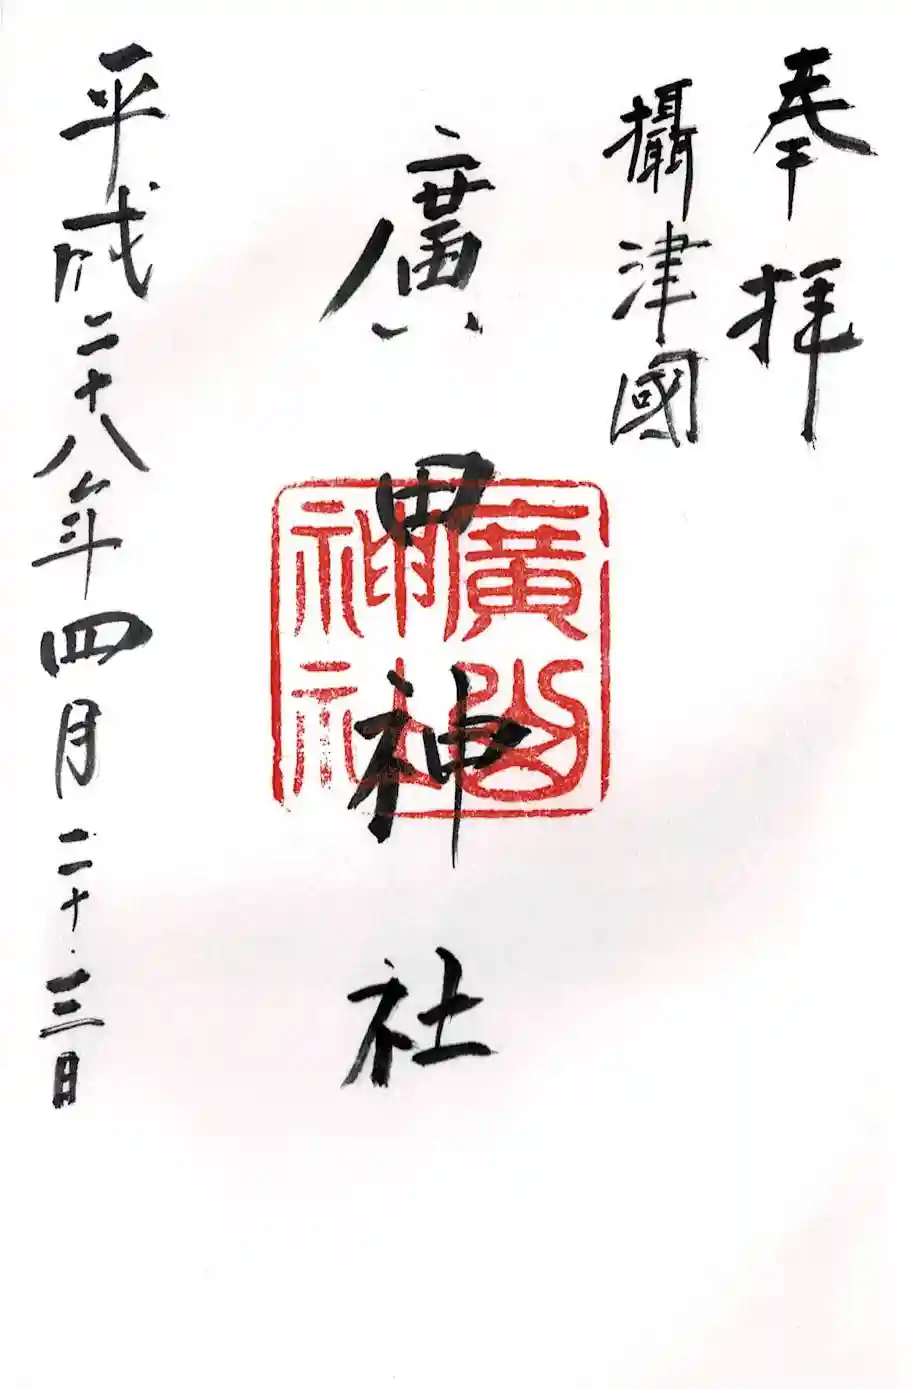 奉拝
攝津國
廣田神社
廣
神社
平成二十八年四月二十三日